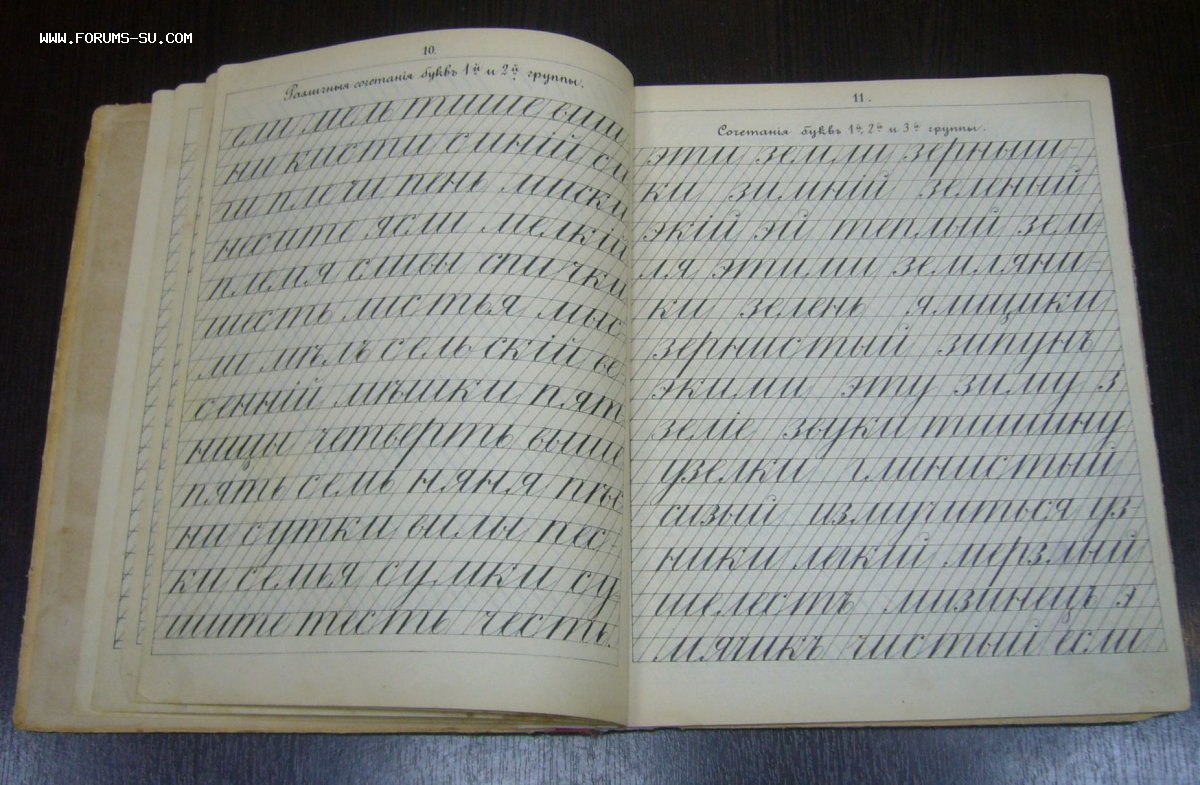 WWW.FORUMS-SU.COM
10.
Различныя сочетанія буквъ 1й и 2й группы.
ели мель тише выш
ни кисти синій си
ли плечи пень миски
несите ясли мелкій
племя сливы спички
шесть листья мыс-
ли мѣлъ сельскій ве
сенній мѣшки пят
ницы четверть выше
пять семь няня пѣс
ни сутки вилы пес-
ки семья сумки су-
шите тесть честь.
11.
Сочетанія буквъ 1й, 2й и 3й группы.
эти земли зерныш
ки зимній зеленый
экій эй теплый зем-
ля этими земляни
ки зелень ямщики
зернистый зипунъ
экими эту зиму з
зеліе звуки тишину
узелки глинистый
сизый измучиться уз-
ники легкій мерзлый
шелестъ мизинецъ э
мячикъ чистый если